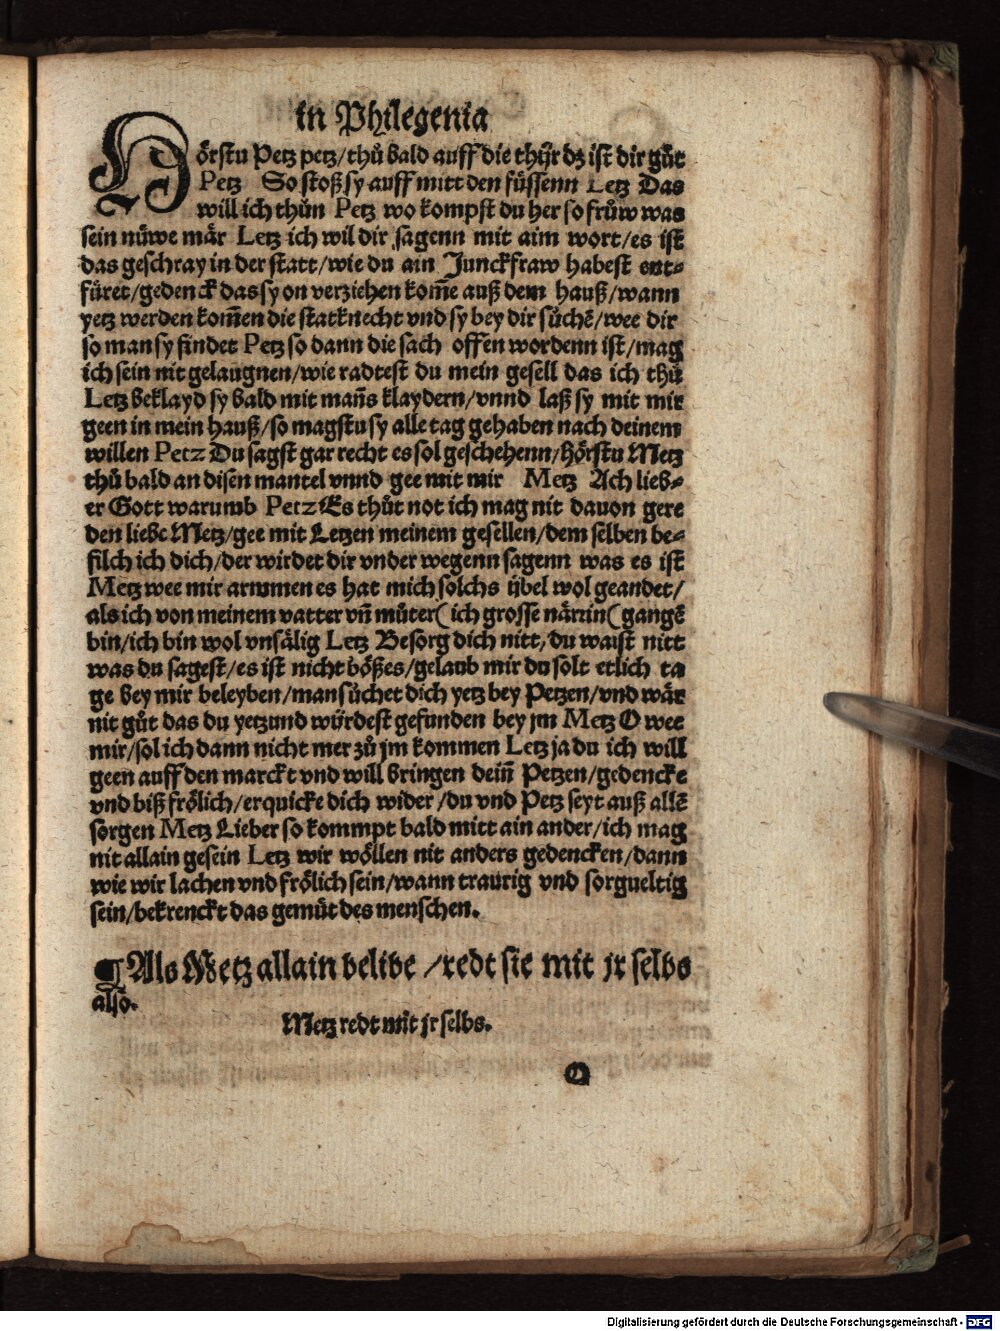 in Philegenia
Hörstu Petz petz/thů bald auff die thijr dz ist dir gůt
Petz So stoß sy auff mitt den füssenn Letz Das
will ich thůn Petz wo kompst du her so frůw was
sein nüwe mär Letz ich wil dir sagenn mit aim wort/es ist
das geschray in der statt/wie du ain Junckfraw habest ent⸗
füret/gedenck das sy on verziehen kom̄e auß dem hauß/wann
yetz werden kom̄en die statknecht vnd sy bey dir sůchē/wee dir
so man sy findet Petz so dann die sach offen wordenn ist/mag
ich sein nit gelaugnen/wie radtest du mein gesell das ich thů
Letz beklayd sy bald mit man̄s klaydern/vnnd laß sy mit mir
geen in mein hauß/so magstu sy alle tag gehaben nach deinem
willen Petz Du sagst gar recht es sol geschehenn/hörstu Metz
thů bald an disen mantel vnnd gee mit mir Metz Ach lieb⸗
er Gott warumb Petz Es thůt not ich mag nit dauon gere
den liebe Metz/gee mit Letzen meinem gesellen/dem selben be⸗
filch ich dich/der wirdet dir vnder wegenn sagenn was es ist
Metz wee mir armmen es hat mich solchs ijbel wol geandet/
als ich von meinem vatter vn̄ můter(ich grosse närrin(gangē
bin/ich bin wol vnsälig Letz Besorg dich nitt/du waist nitt
was du sagest/es ist nicht bößes/gelaub mir du solt etlich ta
ge bey mir beleyben/man sůchet dich yetz bey Petzen/vnd wär
nit gůt das du yetzund würdest gefunden bey jm Metz O wee
mir/sol ich dann nicht mer zů jm kommen Letz ja du ich will
geen auff den marckt vnd will bringen dein̄ Petzen/gedencke
vnd biß frölich/erquicke dich wider/du vnd Petz seyt auß allē
sorgen Metz Lieber so kommpt bald mitt ain ander/ich mag
nit allain gesein Letz wir wöllen nit anders gedencken/dann
wie wir lachen vnd frölich sein/wann traurig vnd sorgueltig
sein/bekrenckt das gemüt des menschen.
¶ Als Metz allain belibe/redt sie mit jr selbs
also.
Metz redt mit jr selbs.
O
Digitalisierung gefördert durch die Deutsche Forschungsgemeinschaft - DFG